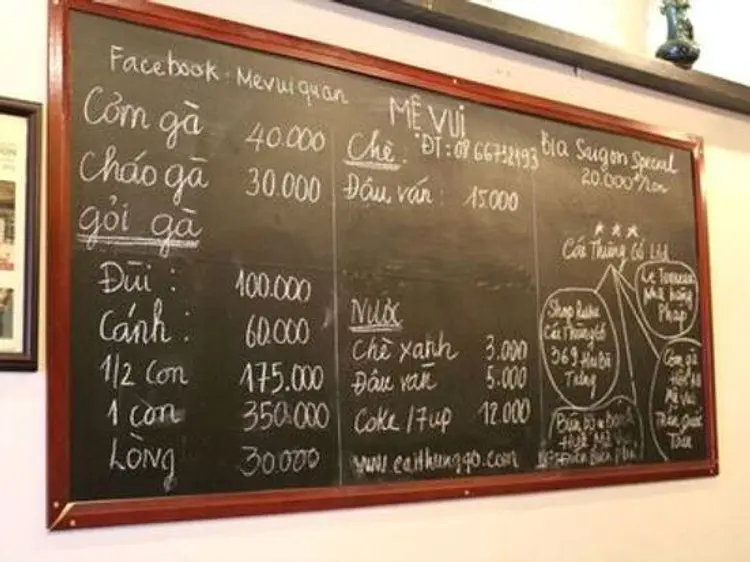 Facebook: Mevuiquan
MÊ VUI
ĐT: 08 66732193
Cơm gà 40.000
Cháo gà 30.000
gỏi gà
Đùi: 100.000
Cánh: 60.000
1/2 con 175.000
1 con 350.000
LÒNG 30.000
Chè:
Đậu ván: 15.000
NƯỚC
Chè xanh 3.000
Đậu ván 5.000
Coke /7up 12.000
www.caithunggo.com
BIA Saigon Special
20.000đ/lon
Cái Thùng Gỗ Ltd
Nhà hàng
Pháp
Shop
Cái Thùng Gỗ
369 Hai Bà
Trưng
Cơm gà
Hội An
Mê Vui
Trần Quốc
Toản
Mê Vui
Điện Biên Phủ